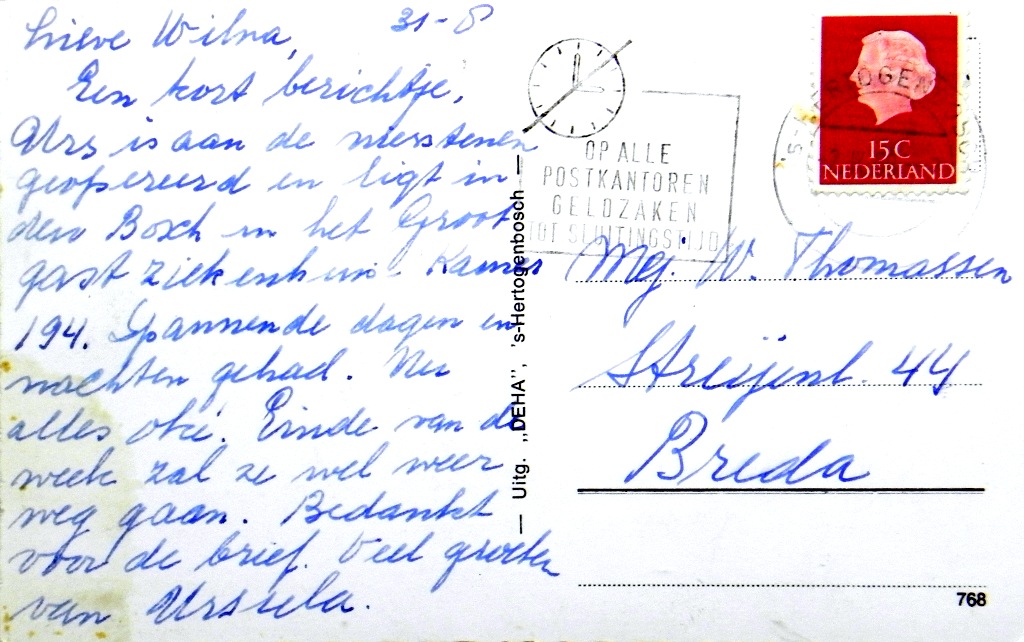 Lieve Wilna, 31-8
Een kort berichtje.
Urs is aan de nierstenen
geopereerd en ligt in
den Bosch in het Groot
gast ziekenhuis. Kamer
194. Spannende dagen en
nachten gehad. Nu
alles oké. Einde van de
week zal ze wel weer
weg gaan. Bedankt
voor de brief. Veel groeten
van Ursula.
Uitg. „DEHA”, 's-Hertogenbosch
OP ALLE
POSTKANTOREN
GELDZAKEN
TOT SLUITINGSTIJD
15 C
NEDERLAND
Mej. W. Thomassen
Streijenl. 44
Breda
768